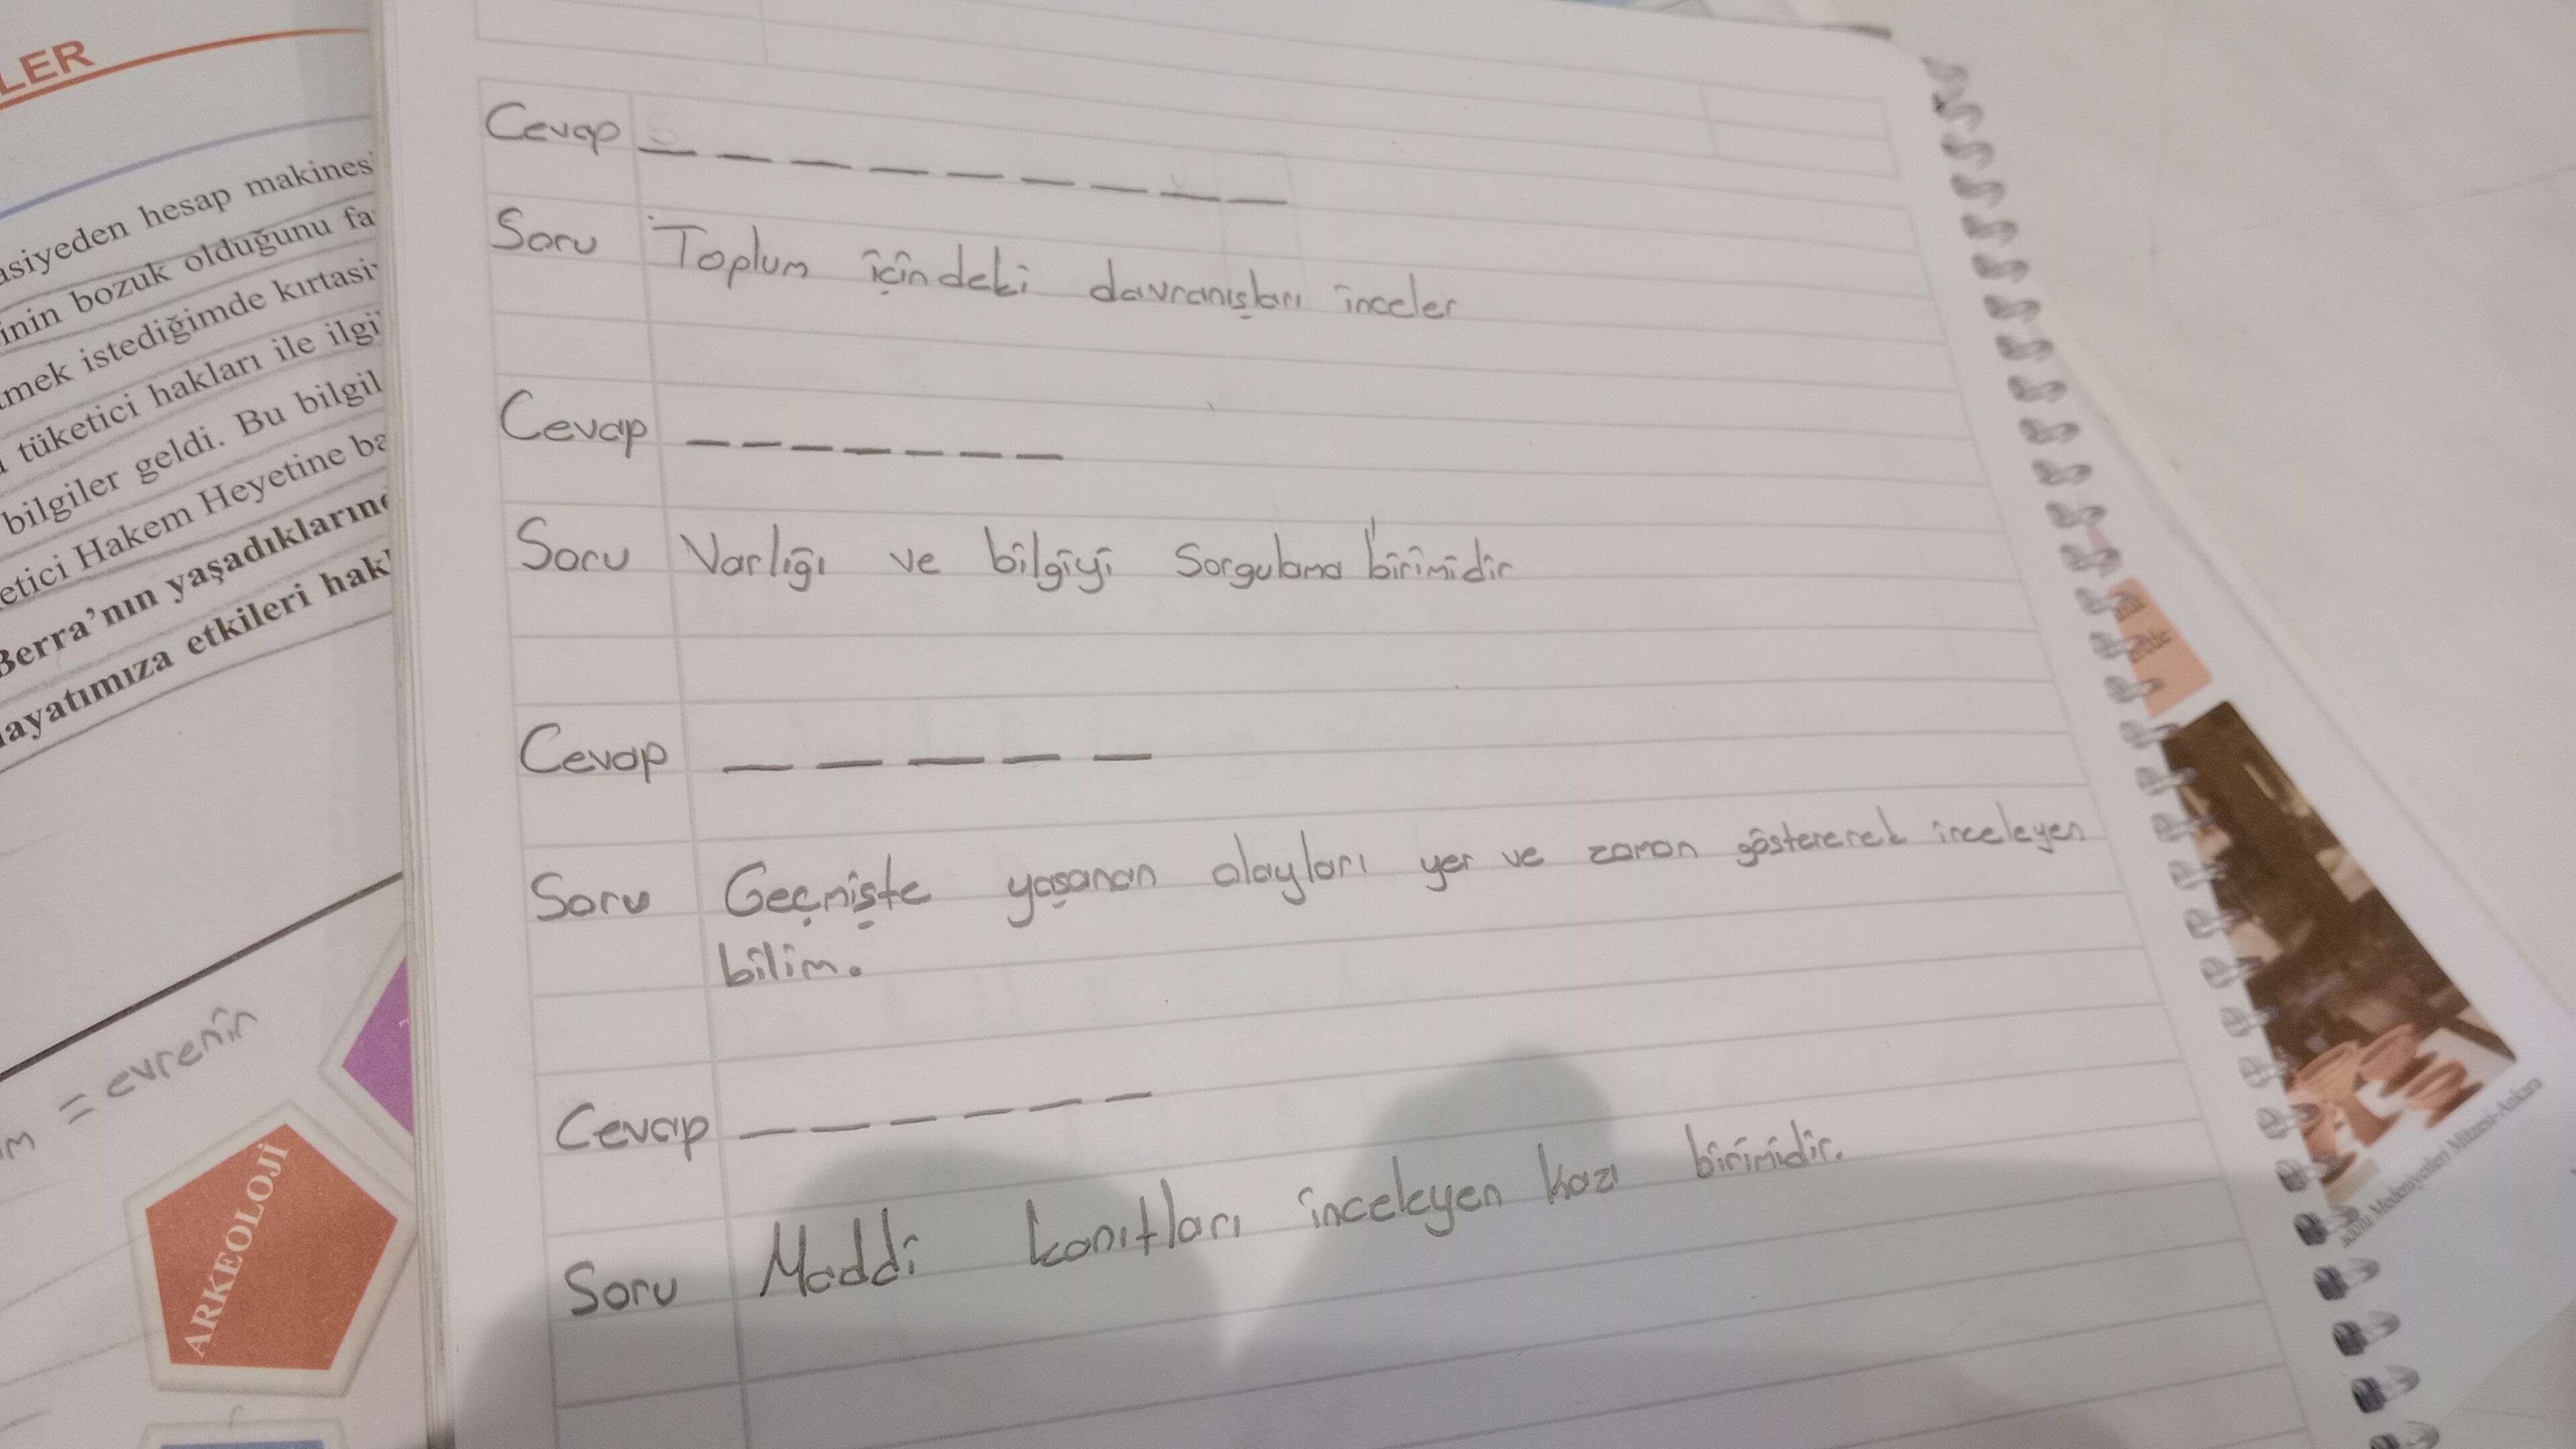 LER
asiyeden hesap makines
inin bozuk olduğunu fa
mek istediğimde kırtasi
tüketici hakları ile ilgi
bilgiler geldi. Bu bilgil
etici Hakem Heyetine ba
Berra'nın yaşadıklarınd
ayatımıza etkileri hak
m = evrenin
ARKEOLOJİ
Cevap _ _ _ _ _ _ _ _ _
Soru Toplum içindeki davranışları inceler
Cevap _ _ _ _ _ _ _
Soru Varlığı ve bilgiyi Sorgulama birimidir
Cevap _ _ _ _ _
Soru Geçmişte yaşanan olayları yer ve zaman göstererek inceleyen
bilim.
Cevap _ _ _ _ _ _
Soru Maddi kanıtları inceleyen kazı birimidir.
Medeniyetleri Müzesi-Ankara